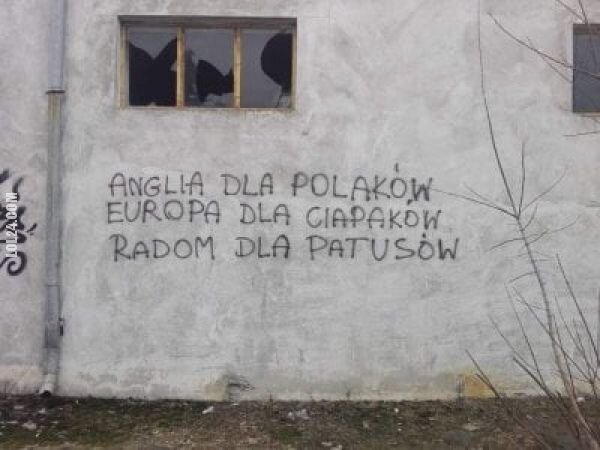 ANGLIA DLA POLAKÓW
EUROPA DLA CIAPAKÓW
RADOM DLA PATUSÓW
LOL24.COM